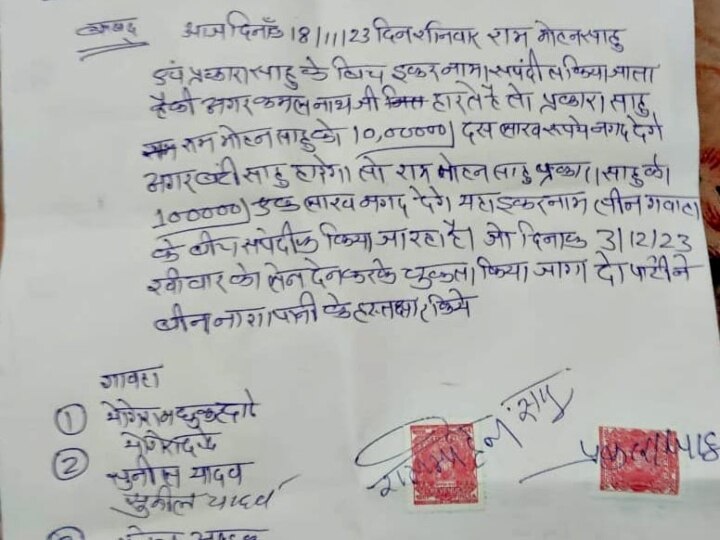 आज दिनाँक 18/11/23 दिन शनिवार राम मोहन साहु
एवं प्रकाश साहु के बिच इकरनामा संपंदीत किया जाता
है की अगर कमलनाथ जी हारते है तो प्रकाश साहु
राम मोहन साहु को 10,00000/ दस लाख रूपये नगद देंगे
अगर बंटी साहु हारेगा तो राम मोहन साहु प्रकाश साहु को
100000/ एक लाख नगद देंगे यहा इकरनामा तीन गवाहा
के बीच संपंदीत किया जा रहा है। जो दिनाक 3/12/23
रवीवार को लेन देन करके चुकता किया जागा दो पार्टी ने
बीन नाशा पानी के हस्तक्षार किये
गावहा
① योगेश
② सुनील यादव
सुनील यादव
राममोहन साहु
प्रकाश साहु